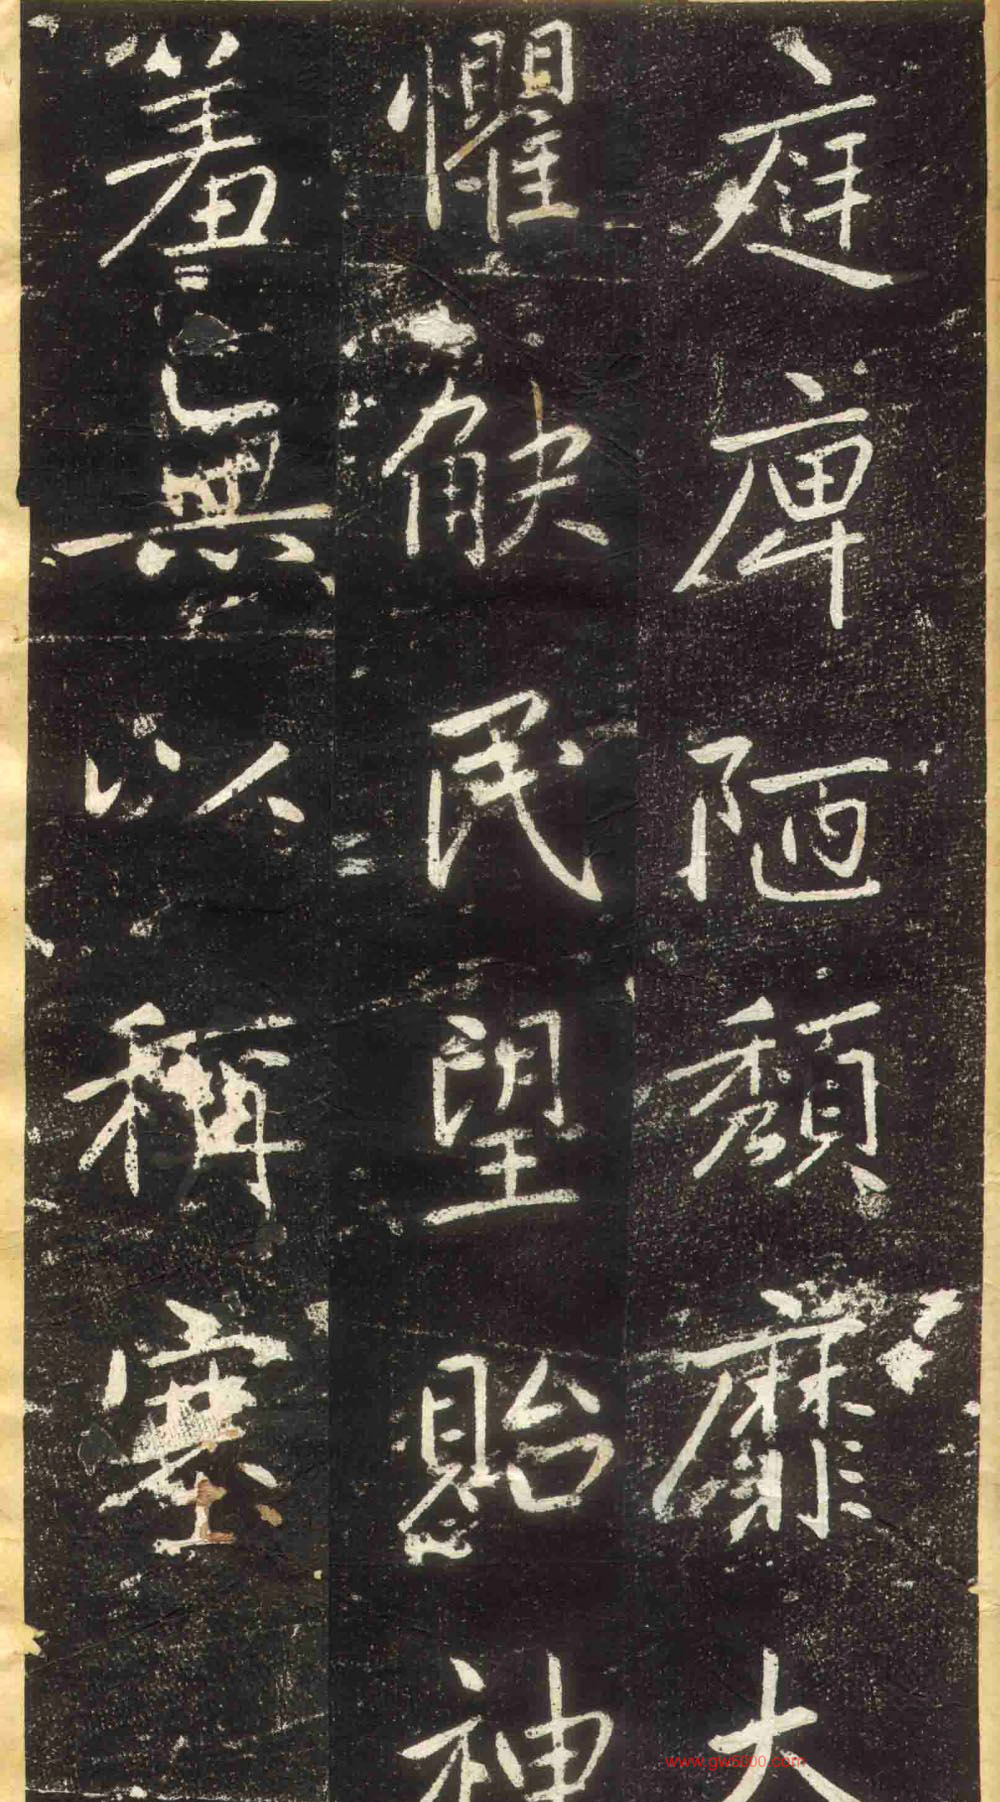 庭庳陋頹靡大
懼觖民望貽神
羞無以稱塞
www.gw8800.com